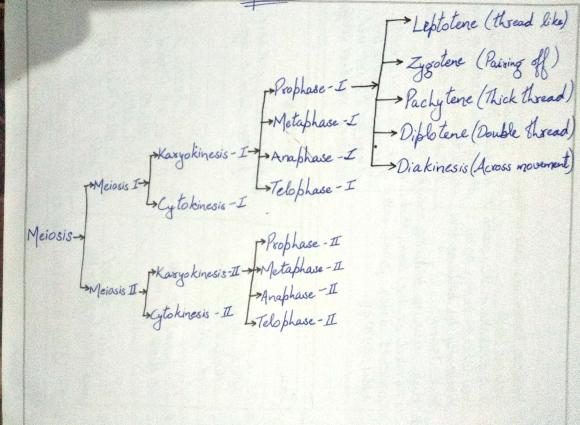 Leptotene (thread like)
Zygotene (Pairing off)
Prophase-I
Pachytene (Thick thread)
Metaphase-I
Diplotene (Double thread)
Karyokinesis-I
Anaphase-I
Diakinesis (Across movement)
Meiosis I
Telophase-I
Cytokinesis-I
Meiosis
Prophase-II
Karyokinesis-II
Metaphase-II
Meiosis II
Anaphase-II
Cytokinesis-II
Telophase-II